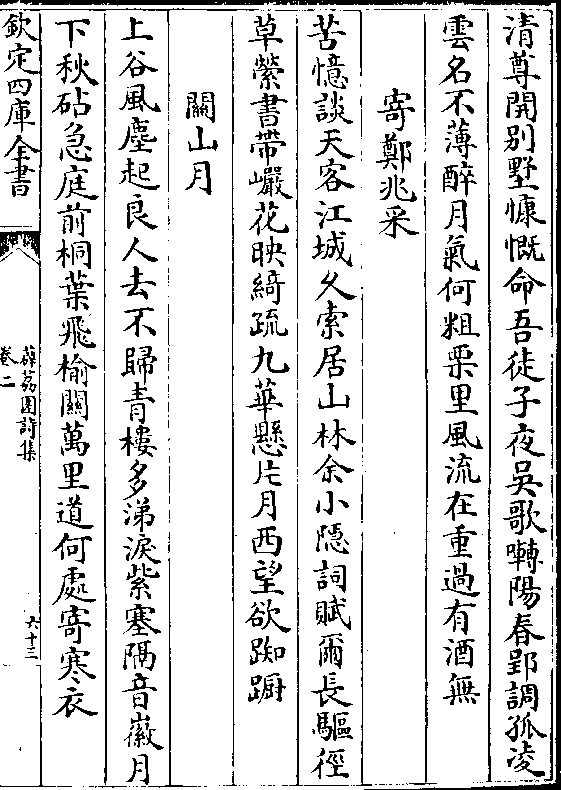 清尊開别墅慷慨命吾徒子夜吳歌囀陽春郢調孤凌
雲名不薄醉月氣何粗栗里風流在重過有酒無
寄鄭兆采
苦憶談天客江城久索居山林余小隱詞賦爾長驅徑
草縈書帶巗花映綺疏九華懸片月西望欲踟蹰
關山月
上谷風塵起良人去不歸青樓多涕淚紫塞隔音徽月
下秋砧急庭前桐葉飛榆關萬里道何處寄寒衣
欽定四庫全書
薜荔園詩集
卷二
六十三